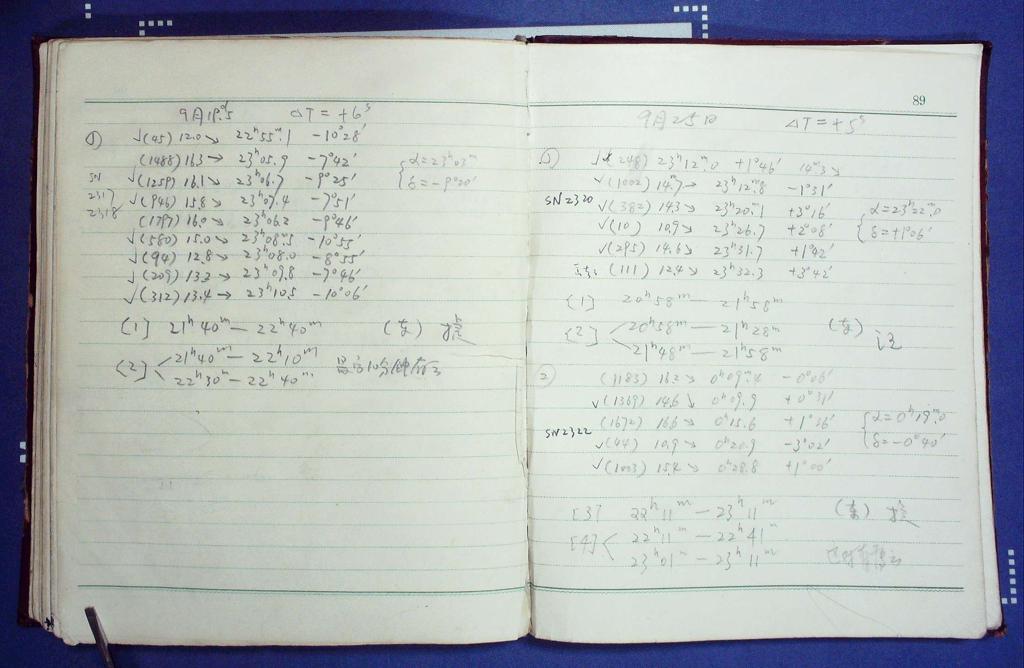 9月18.5 ΔT = +6ˢ
① √(45) 12.0↘ 22ʰ55ᵐ.1 -10°28′
(1488) 16.3→ 23ʰ05.9 -7°42′
SN √(1259) 16.1↘ 23ʰ06.7 -9°25′
{ α=23ʰ03ᵐ
δ=-9°20′
2317 √(946) 15.8↘ 23ʰ07.4 -7°51′
2318 (1797) 16.0→ 23ʰ06.2 -9°46′
√(580) 15.0↘ 23ʰ08ᵐ.5 -10°55′
√(94) 12.8↘ 23ʰ08.0 -8°55′
√(209) 13.2→ 23ʰ09.8 -7°46′
√(312) 13.4→ 23ʰ10.5 -10°06′
[1] 21ʰ40ᵐ—22ʰ40ᵐ (东)
[2] 21ʰ40ᵐ—22ʰ10ᵐ
22ʰ30ᵐ—22ʰ40ᵐ 10分钟
89
9月25日 ΔT = +5ˢ
① √(248) 23ʰ12ᵐ.0 +1°46′ 14ᵐ.3↘
√(1002) 14ᵐ.7→ 23ʰ12ᵐ.8 -1°31′
SN2320 √(382) 14.3↘ 23ʰ20ᵐ.1 +3°16′
{ α=23ʰ22ᵐ.0
δ=+1°06′
√(10) 10.9↘ 23ʰ26.7 +2°08′
√(295) 14.6↘ 23ʰ31.7 +1°42′
(111) 12.4↘ 23ʰ32.3 +3°42′
[1] 20ʰ58ᵐ—21ʰ58ᵐ
[2] 20ʰ58ᵐ—21ʰ28ᵐ (东)
21ʰ48ᵐ—21ʰ58ᵐ
② (1183) 16.2↘ 0ʰ09ᵐ.4 -0°06′
√(1369) 14.6↘ 0ʰ09.9 +0°31′
(1672) 16.6↘ 0ʰ15.6 +1°36′
{ α=0ʰ19ᵐ.0
δ=-0°40′
SN2322 √(44) 10.9↘ 0ʰ20.9 -3°02′
√(1003) 15.4↘ 0ʰ28.8 +1°00′
[3] 22ʰ11ᵐ—23ʰ11ᵐ (东)
[4] 22ʰ11ᵐ—22ʰ41ᵐ
23ʰ01ᵐ—23ʰ11ᵐ